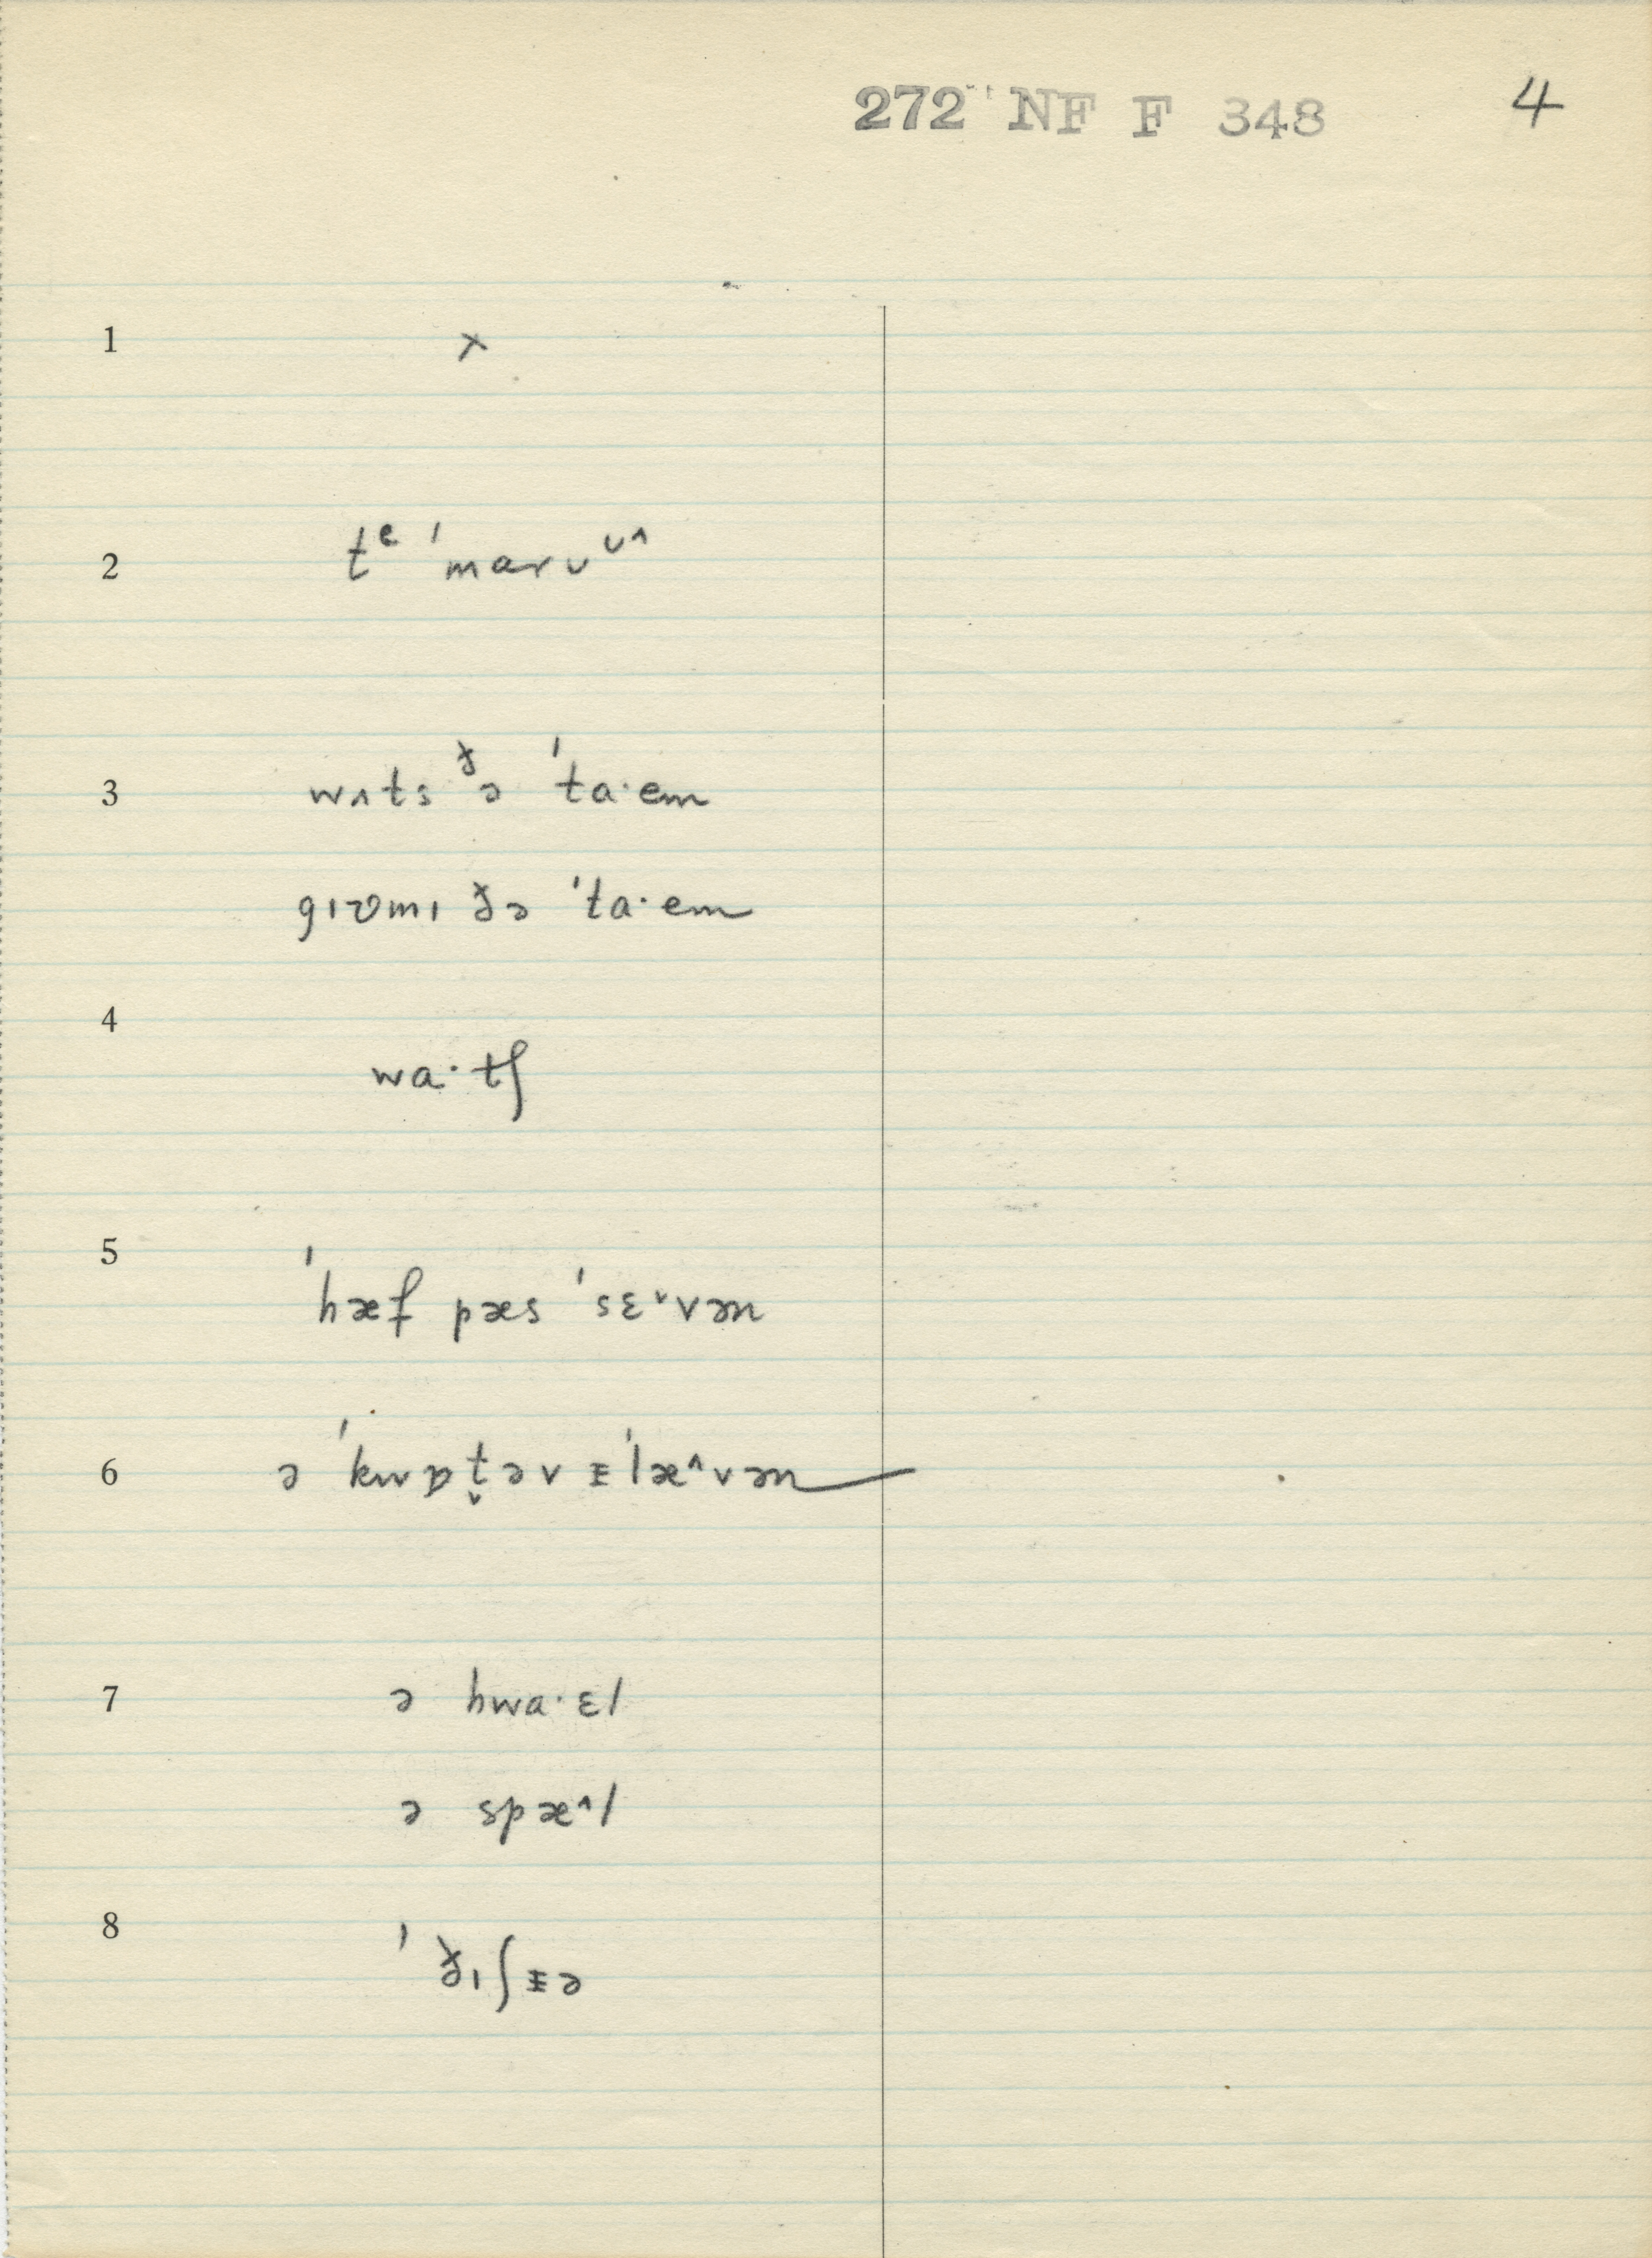 272 NF F 348 4
1 ×
2 tᵉ ˈmarʊᴜ^
3 wʌts ᵟə ˈta·em
gɪʋmɪ ðə ˈta·em
4 wa·tʃ
5 ˈhæf pæs ˈsɛ˅vən
6 ə ˈkwɒt̬əv ᵻˈlæ^vən
7 ə hwa·ɛl
ə spæ^l
8 ˈðɪʃᵻə